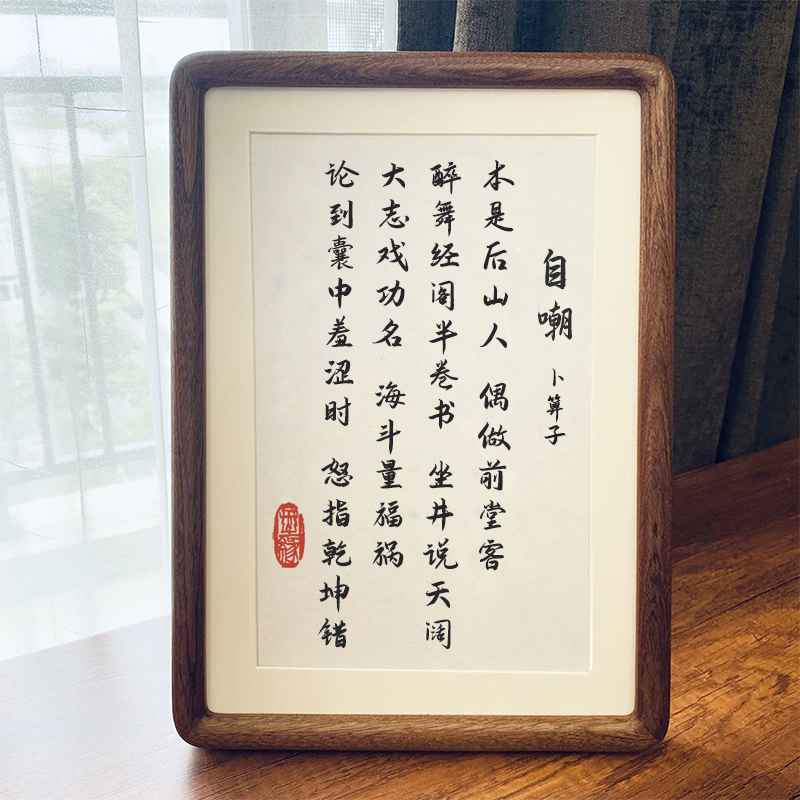 自嘲 卜算子
本是后山人 偶做前堂客
醉舞经阁半卷书 坐井说天阔
大志戏功名 海斗量福祸
论到囊中羞涩时 怒指乾坤错
无缘